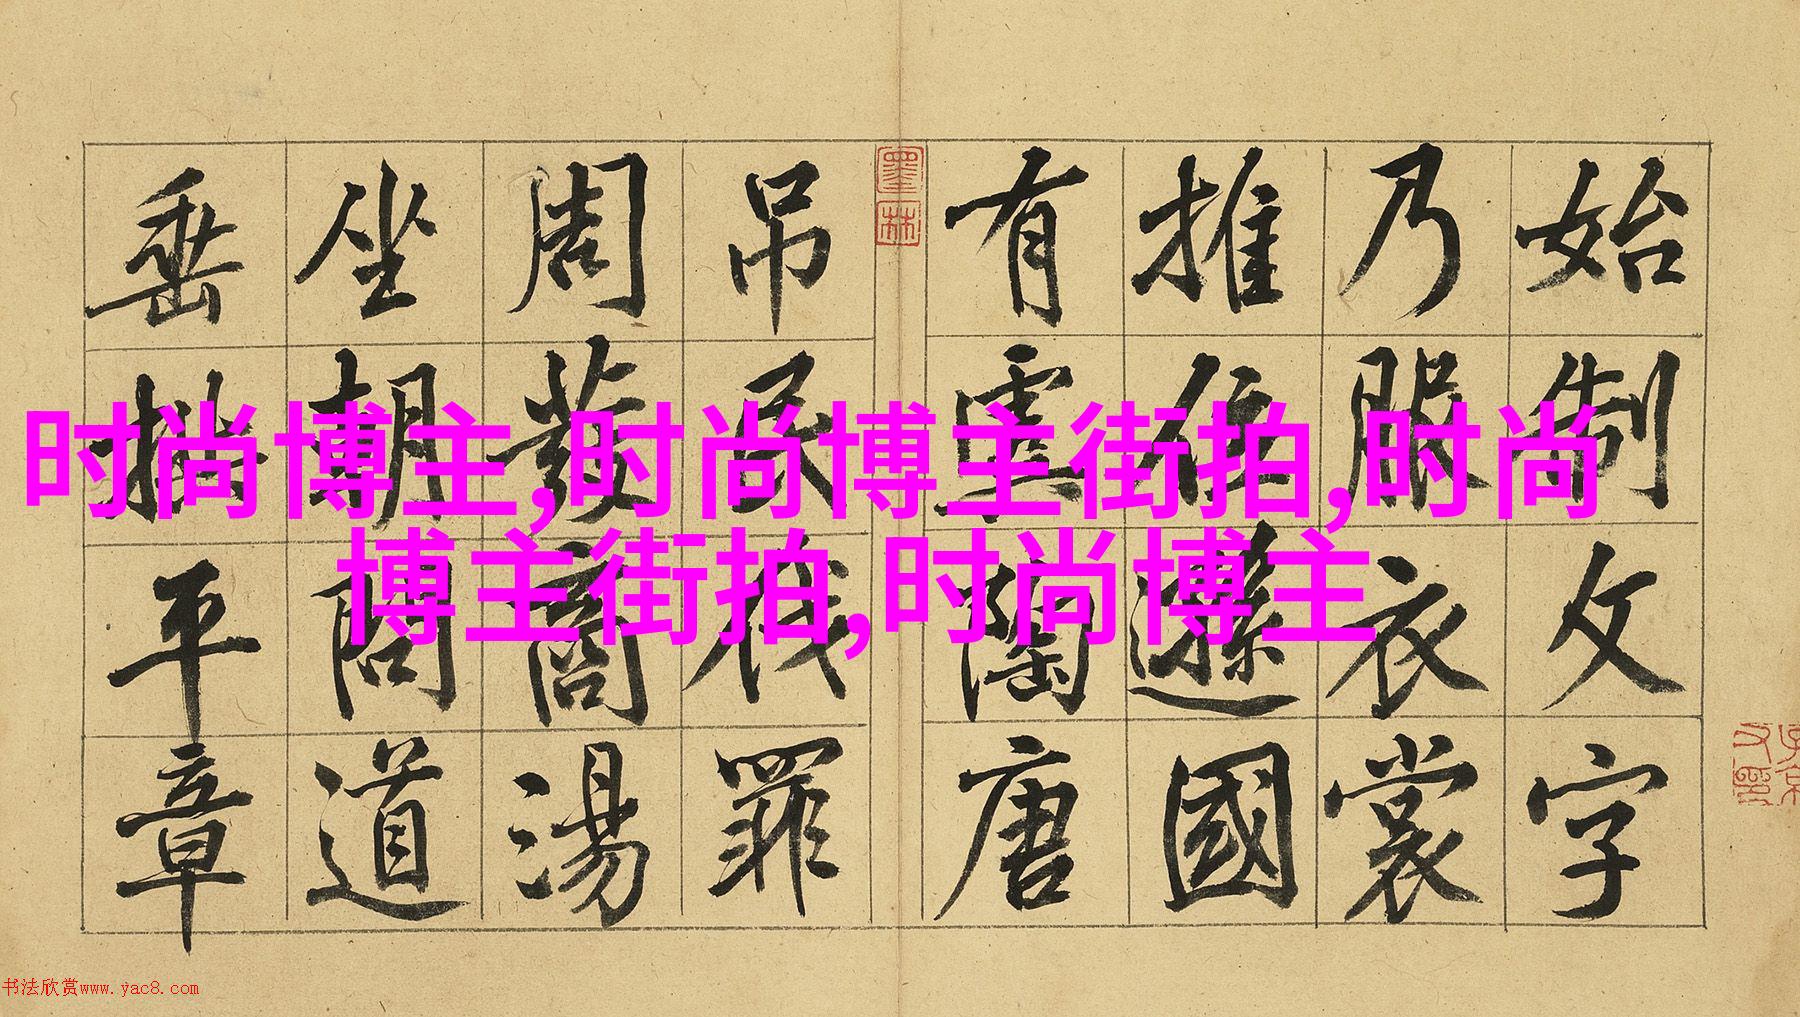 始制文字
乃服衣裳
推位遜國
有虞陶唐
吊民伐罪
周發商湯
坐朝問道
垂拱平章
墨林
时尚博主,时尚博主街拍,时尚
博主街拍,时尚博主
书法欣赏www.yac8.com